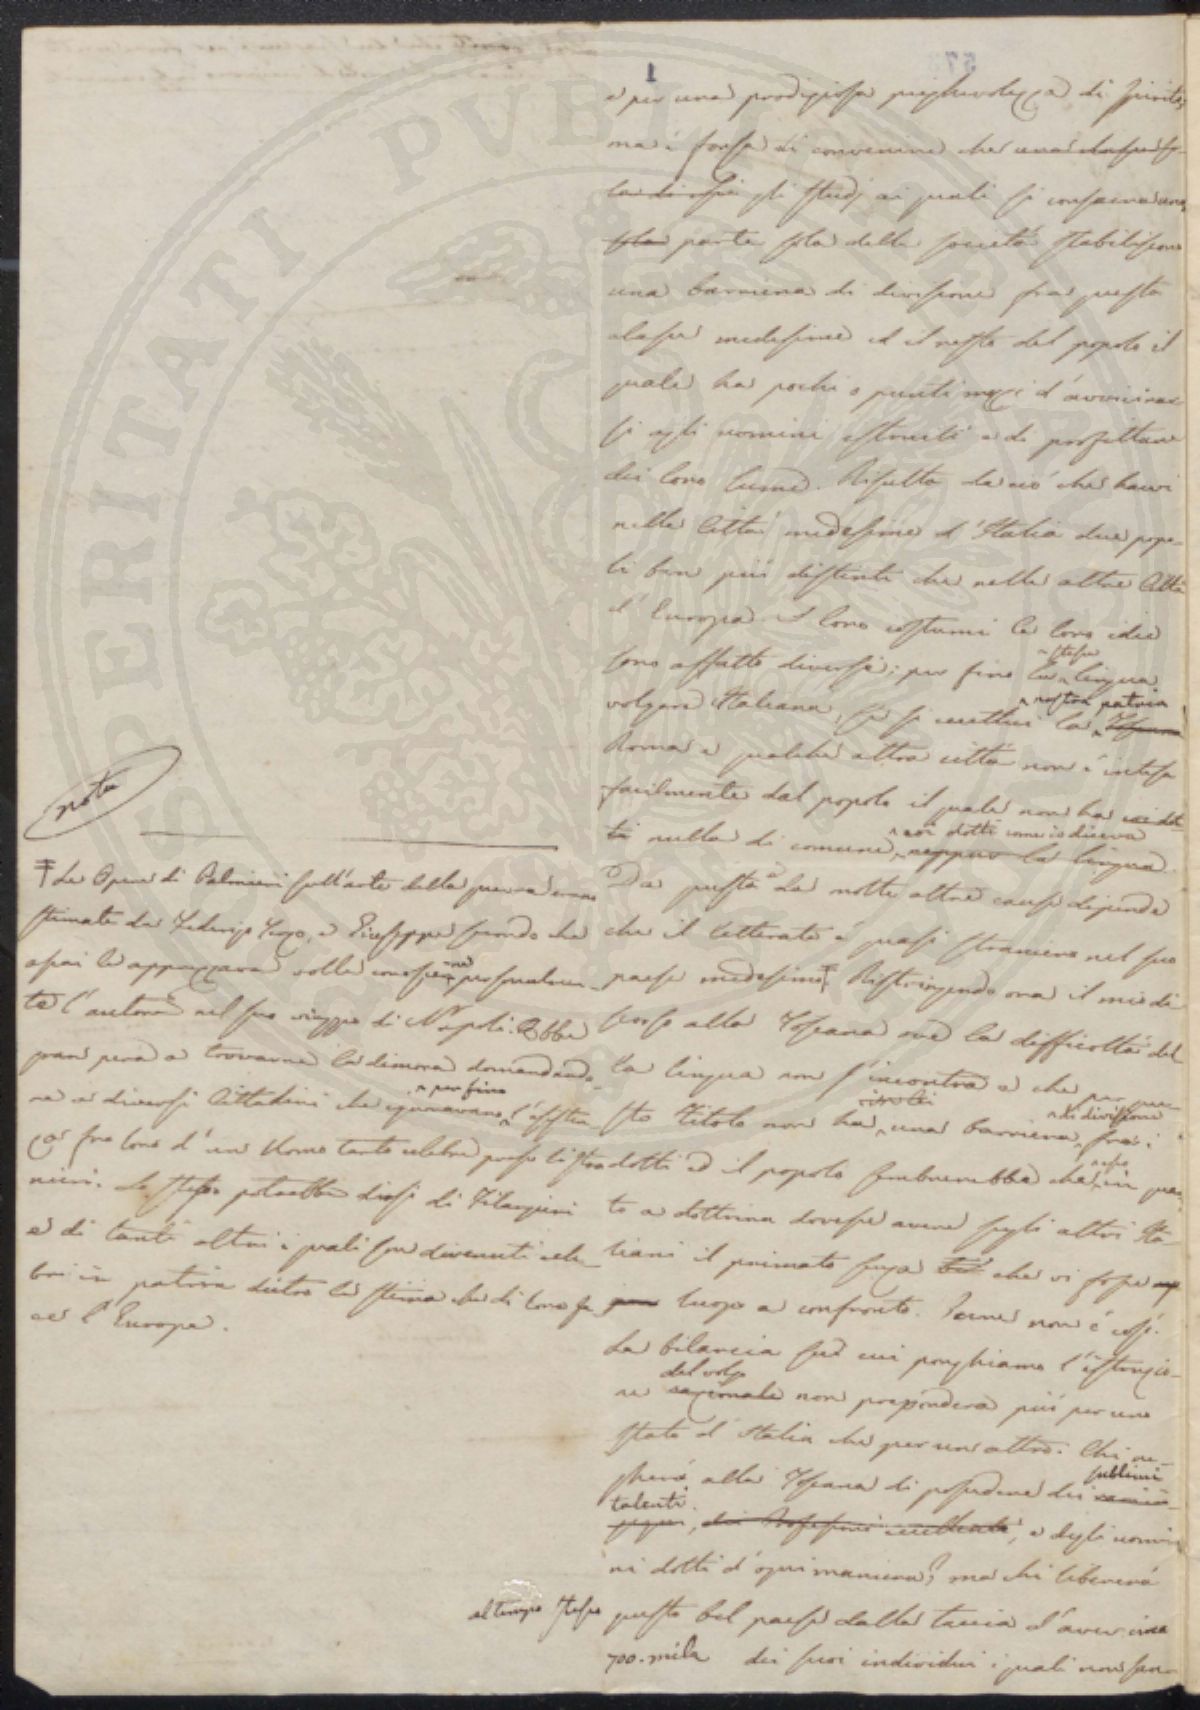 1
e per una prodigiosa pieghevolezza di spirito;
ma è forza di convenire che una classe so-
la di essi gli studj ai quali si consacra una
sola parte sola della società stabiliscono
una barriera di divisione fra questa
classe medesima ed il resto del popolo il
quale ha pochi o punti mezzi d'avvicinar-
si agli uomini istruiti e di profittare
dei loro lumi. Risulta da ciò che havvi
nelle Città medesime d'Italia due popo-
li ben più distinti che nelle altre Città
d'Europa. I loro costumi le loro idee
sono affatto diverse; per fino la stessa lingua
volgare Italiana, se si eccettui la nostra patria Toscana
Roma e qualche altra città non è intesa
facilmente dal popolo il quale non ha coi dot-
ti nulla di comune coi dotti come io diceva neppur la lingua.
Da questa e da molte altre cause dipende
che il letterato è quasi straniero nel suo
paese medesimo. Ristringendo ora il mio di-
scorso alla Toscana ove la difficoltà del-
la lingua non s'incontra e che per que-
sto titolo non ha una barriera di divisione fra i
dotti ed il popolo sembrerebbe che in quan-
to a dottrina dovesse avere sugli altri Ita-
liani il primato senza che vi fosse
luogo a confronto. Pure non è così.
La bilancia su cui ponghiamo l'istruzio-
ne del volgo nazionale non prepondera più per uno
stato d'Italia che per un altro. Chi ne-
gherà alla Toscana di possedere dei sublimi
talenti, dei Professori eccellenti, e degli uomi-
ni dotti d'ogni maniera? ma chi libererà
al tempo stesso questo bel paese dalla taccia d'aver circa
700. mila dei suoi individui i quali non san-
nota
Le Opere di Palmieri sull'arte della guerra erano
stimate da Federigo IIo, e Giuseppe secondo che
assai le apprezzava volle conoscerne personalmen-
te l'autore nel suo viaggio di Napoli. Ebbe
gran pena a trovarne la dimora domandando-
ne a diversi Cittadini che ignoravano per fino l'esisten-
za fra loro d'un Uomo tanto celebre presso li stra-
nieri. Lo stesso potrebbe dirsi di Filangieri
e di tanti altri i quali son divenuti cele-
bri in patria dietro la stima che di loro fe-
ce l'Europa.